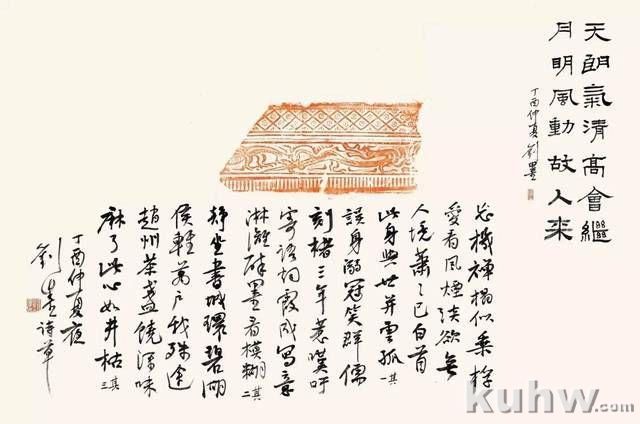 天朗氣清高會繼
月明風動故人来
丁酉仲夏劉墨
忘機禪榻似乘桴
愛看風煙淡欲無
人境蕭〻已白首
此身與世并雲孤 其一
誤身溺冠笑群儒
刻楮三年惹嘆吁
寄語烟霞成寫意
淋灕醉墨看模糊 其二
靜坐書城環碧湖
侯輕萬戶我殊途
趙州茶盞饒滋味
麻了此心如井枯 其三
丁酉仲夏夜
劉墨詩草
kuhw.com